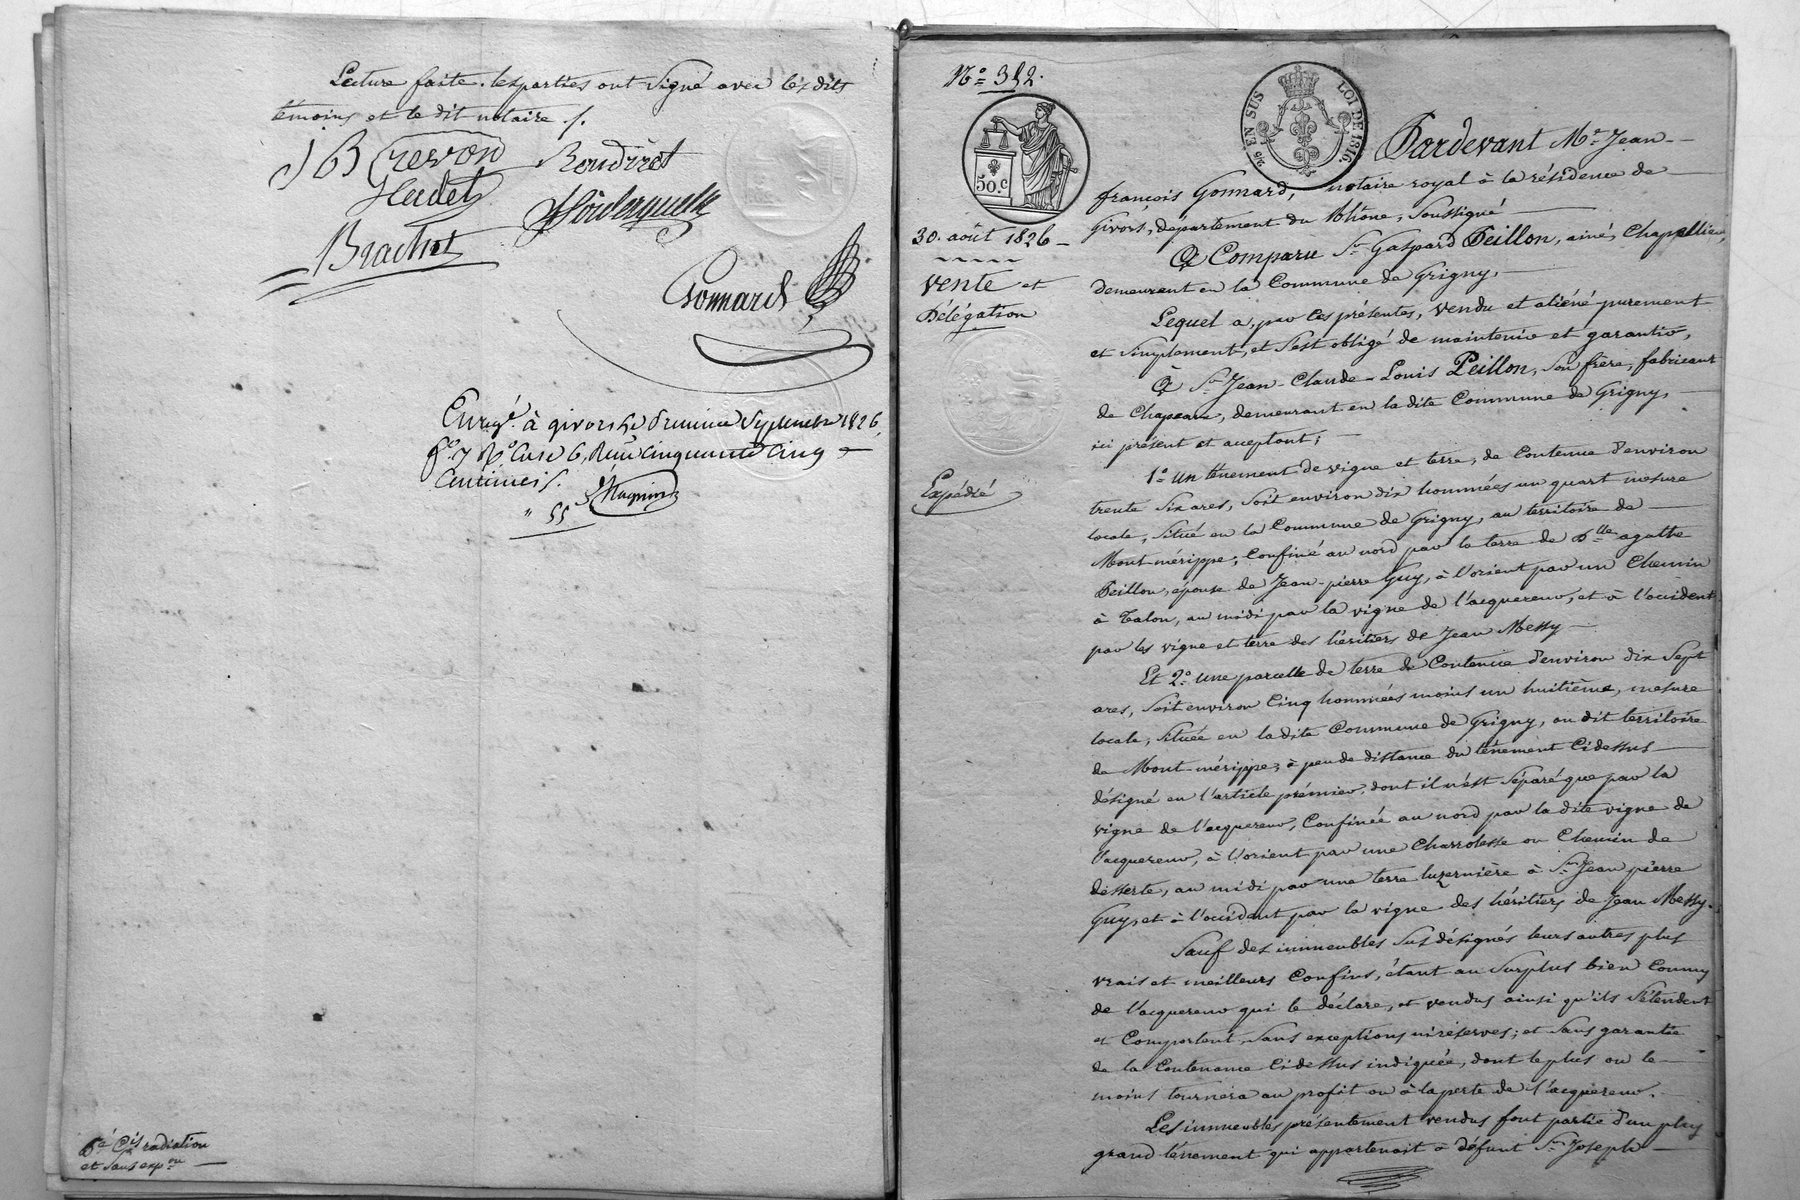 Lecture faite. les parties ont signé avec les dits
témoins et le dit notaire ./.
J B Crevon
Boudirot
Hudet
Brachet
Gonnard
Enregé. à givors le premier Septembre 1826,
fo. 7 Ro Case 6, Reçu Cinquante Cinq
Centimes /.
" 55
Dé Cis radiation
et sans expon
No = 352.
50.c
2/6 EN SUS
LOI DE 1816.
30. août 1826
vente et
Délégation
Expédié
Pardevant Me. Jean-
françois Gonnard, notaire royal à la résidence de
Givors, département du Rhône, soussigné
A Comparu Sr. Gaspard Peillon, ainé, Chapellier,
demeurant en la Commune de Grigny,
Lequel a, par ces présentes, vendu et aliéné purement
et simplement, et s'est obligé de maintenir et garantir,
A Sr. Jean-Claude-Louis Peillon, son frère, fabricant
de Chapeaux, demeurant en la dite Commune de Grigny,
ici présent et acceptant;
1o. un tènement de vigne et terre, de Contenue d'environ
trente six ares, soit environ dix hommées un quart mesure
locale, situé en la Commune de Grigny, au territoire de
Mont-mérippe; Confiné au nord par la terre de Dlle. agathe
Peillon, épouse de Jean-pierre Guy, à l'orient par un Chemin
à Talon, au midi par la vigne de l'acquereur, et à l'occident
par les vigne et terre des héritiers de Jean Messy
Et 2o. une parcelle de terre de Contenue d'environ dix sept
ares, soit environ Cinq hommées moins un huitième, mesure
locale, située en la dite Commune de Grigny, au dit territoire
de Mont-mérippe, à peu de distance du tènement Cidessus
désigné en l'article prémier, dont il n'est séparé que par la
vigne de l'acquereur, Confinée au nord par la dite vigne de
l'acquereur, à l'orient par une Charrotesse ou Chemin de
desserte, au midi par une terre luzernière à Sr. Jean pierre
Guy, et à l'occident par la vigne des héritiers de Jean Messy.
Sauf des immeubles sus désignés leurs autres plus
vrais et meilleurs Confins, étant au surplus bien Connus
de l'acquereur qui le déclare, et vendus ainsi qu'ils s'étendent
et Comportent, sans exceptions ni réserves; et sans garantie
de la Contenance Cidessus indiquée, dont le plus ou le
moins tournera au profit ou à la perte de l'acquéreur.
Les immeubles présentement vendus font partie d'un plus
grand tènement qui appartenait à défunt Sr. Joseph